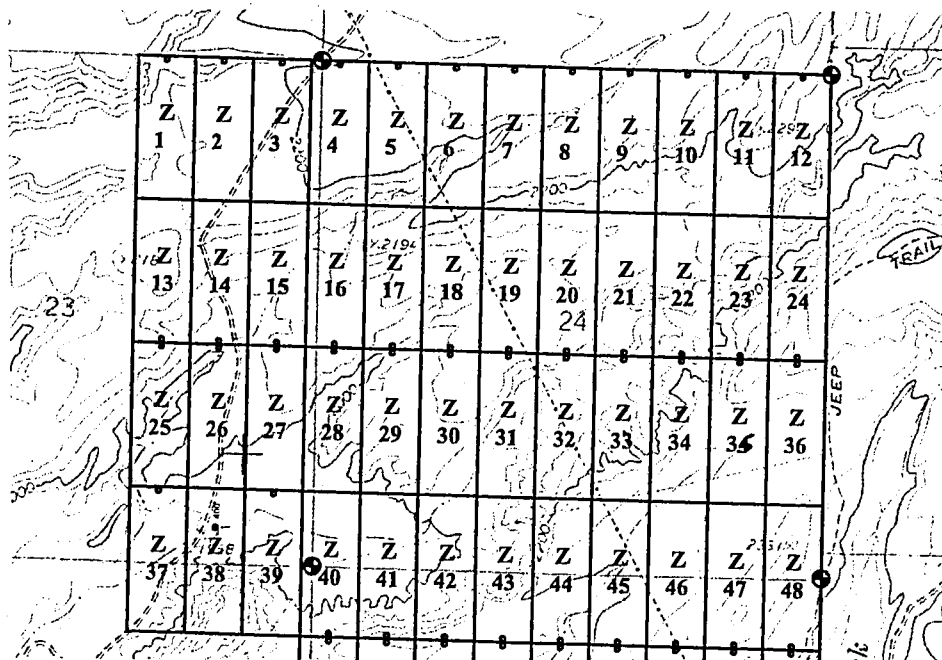 Z 1 Z 2 Z 3 Z 4 Z 5 Z 6 Z 7 Z 8 Z 9 Z 10 Z 11 Z 12
2200
X.2194
TRAIL
Z 13 Z 14 Z 15 Z 16 Z 17 Z 18 Z 19 Z 20 Z 21 Z 22 Z 23 Z 24
23
24
JEEP
Z 25 Z 26 Z 27 Z 28 Z 29 Z 30 Z 31 Z 32 Z 33 Z 34 Z 35 Z 36
Z 37 Z 38 Z 39 Z 40 Z 41 Z 42 Z 43 Z 44 Z 45 Z 46 Z 47 Z 48
k